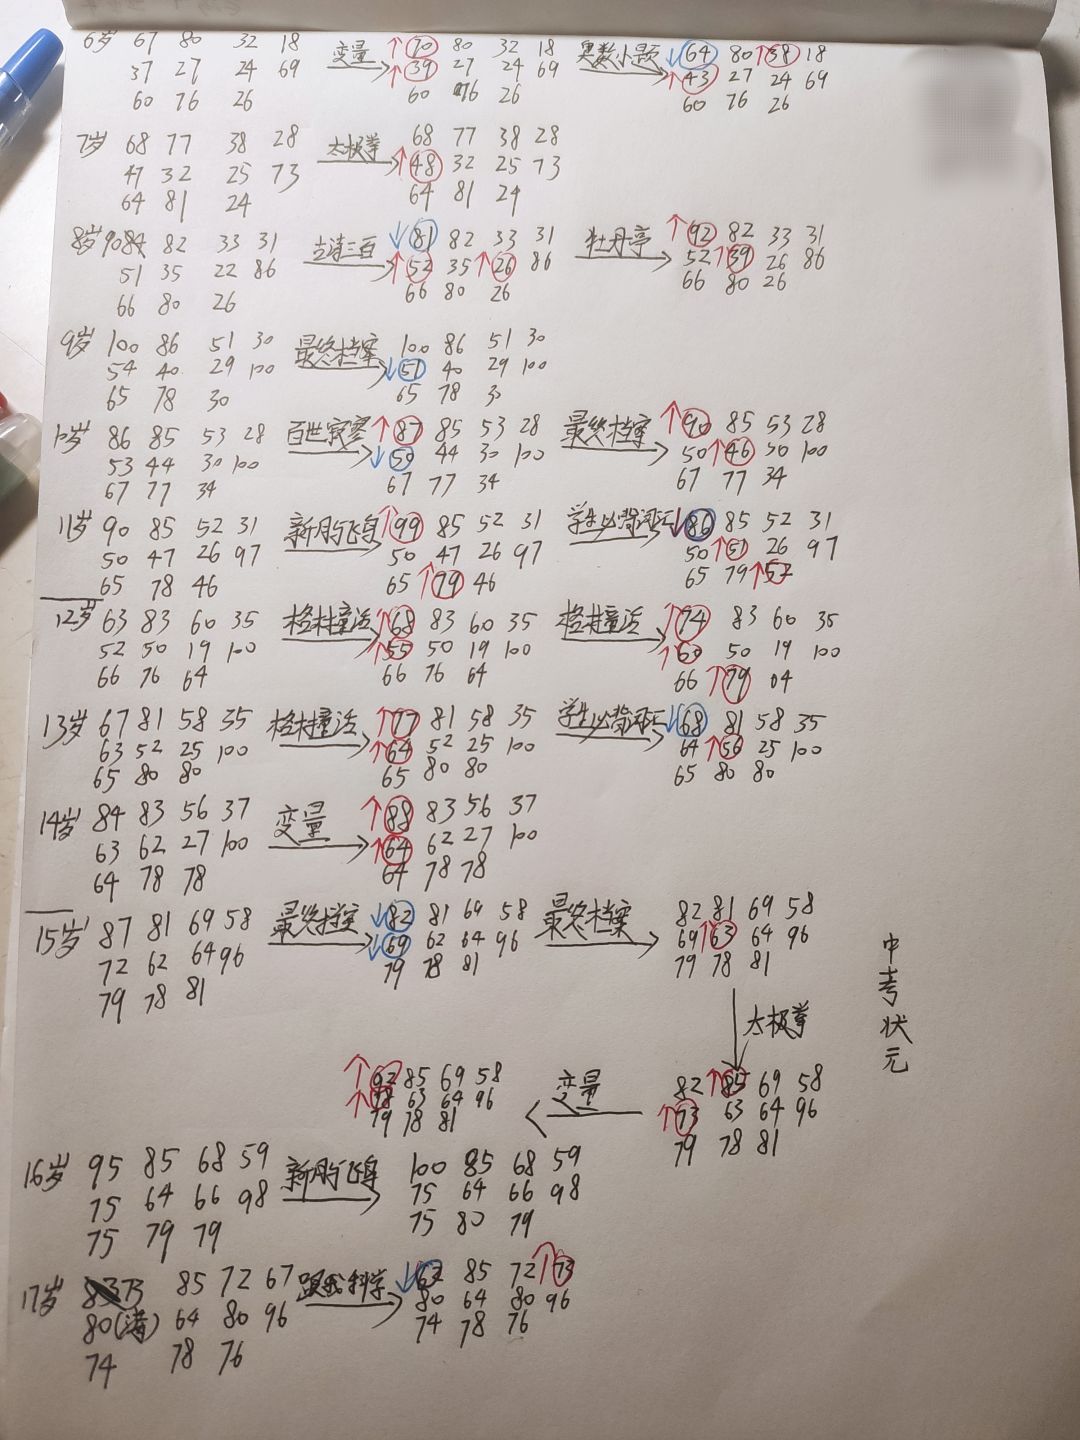 6岁 67 80 32 18 变量 ↑70 80 32 18 奥数小题 ↓64 80 ↑38 18
37 27 24 69 ↑39 27 24 69 ↑43 27 24 69
60 76 26 60 76 26 60 76 26
7岁 68 77 38 28 太极拳 68 77 38 28
47 32 25 73 ↑48 32 25 73
64 81 24 64 81 24
8岁 90 84 82 33 31 古诗三百 ↓81 82 33 31 牡丹亭 ↑92 82 33 31
51 35 22 86 ↑52 35 ↑26 86 52 ↑39 26 86
66 80 26 66 80 26 66 80 26
9岁 100 86 51 30 最终档案 100 86 51 30
54 40 29 100 ↓51 40 29 100
65 78 30 65 78 30
10岁 86 85 53 28 百世寂寥 ↑87 85 53 28 最终档案 ↑90 85 53 28
53 44 30 100 ↓50 44 30 100 50 ↑46 30 100
67 77 34 67 77 34 67 77 34
11岁 90 85 52 31 新月飞鸟 ↑99 85 52 31 学生必背词汇 ↓86 85 52 31
50 47 26 97 50 47 26 97 50 ↑51 26 97
65 78 46 65 ↑79 46 65 79 ↑52
12岁 63 83 60 35 格林童话 ↑68 83 60 35 格林童话 ↑74 83 60 35
52 50 19 100 ↑55 50 19 100 ↑60 50 19 100
66 76 64 66 76 64 66 ↑79 64
13岁 67 81 58 35 格林童话 ↑77 81 58 35 学生必背词汇 ↓68 81 58 35
63 52 25 100 ↑64 52 25 100 64 ↑56 25 100
65 80 80 65 80 80 65 80 80
14岁 84 83 56 37 变量 ↑88 83 56 37
63 62 27 100 ↑64 62 27 100
64 78 78 64 78 78
15岁 87 81 69 58 最终档案 ↓82 81 69 58 最终档案 82 81 69 58
72 62 64 96 ↓69 62 64 96 69 ↑63 64 96
79 78 81 79 78 81 79 78 81
中考状元
太极拳
↑92 85 69 58 变量 82 ↑85 69 58
↑78 63 64 96 ↑73 63 64 96
79 78 81 79 78 81
16岁 95 85 68 59 新月飞鸟 100 85 68 59
75 64 66 98 75 64 66 98
75 79 79 75 80 79
17岁 73 85 72 67 跟我科学 ↓62 85 72 ↑73
80(满) 64 80 96 80 64 80 96
74 78 76 74 78 76